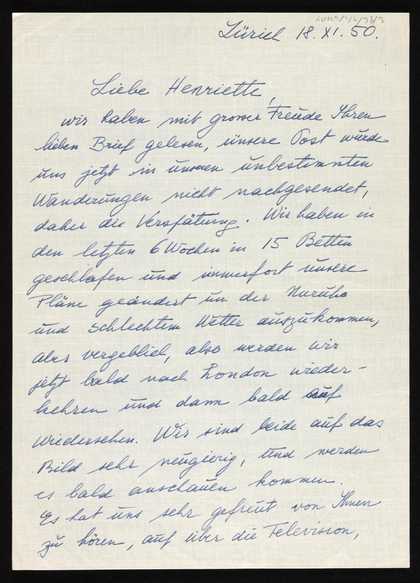 Zürich 18.XI.50.
Liebe Henriette,
wir haben mit grosser Freude Ihren
lieben Brief gelesen, unsere Post wurde
uns jetzt in unseren unbestimmten
Wanderungen nicht nachgesendet,
daher die Verspätung. Wir haben in
den letzten 6 Wochen in 15 Betten
geschlafen und immerfort unsere
Pläne geändert um der Unruhe
und schlechtem Wetter auszukommen,
aber vergeblich, also werden wir
jetzt bald nach London wieder-
kehren und dann bald auf
Wiedersehen. Wir sind beide auf das
Bild sehr neugierig, und werden
es bald anschauen kommen.
Es hat uns sehr gefreut von Ihnen
zu hören, auf über die Television,